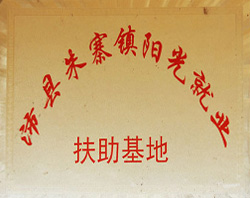 沛县朱寨镇阳光就业
扶助基地